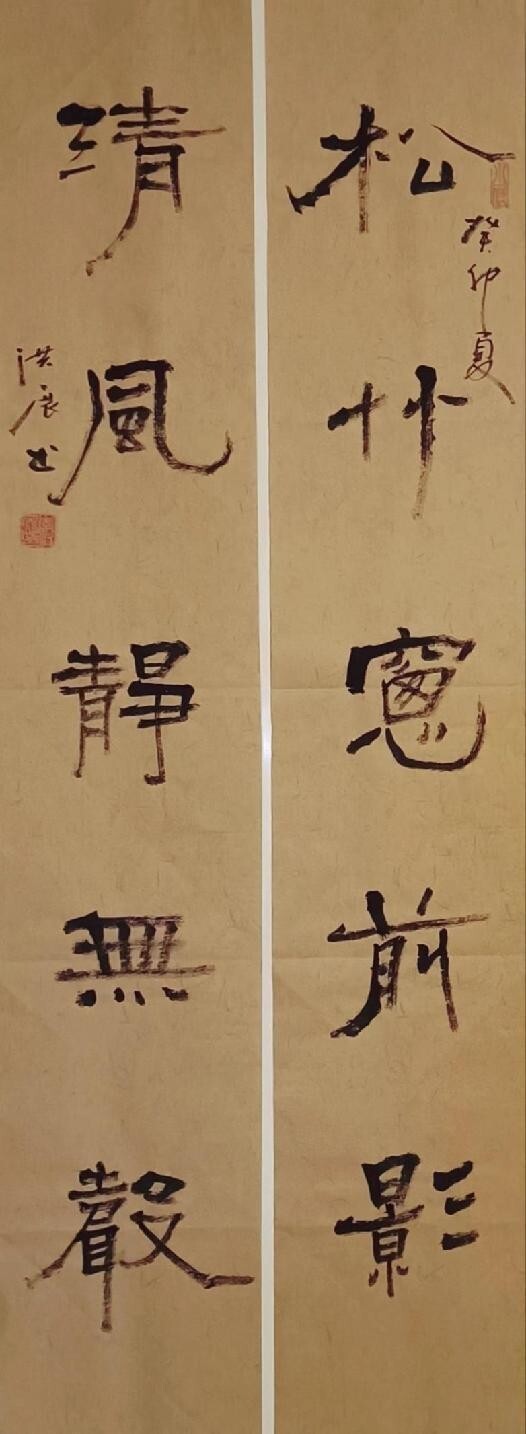 松竹窗前影
癸卯夏
清風靜無聲
洪展书